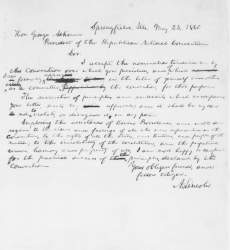 Springfield, Ills. May 23, 1860
Hon. George Ashmun
President of the Republican National Convention
Sir:
I accept the nomination tendered me by
the Convention over which you presided, and
of
the committee of the convention for that purpose
The declaration of principles and sentiments which accompanies
your letter meets my approval; and it shall be my care
not to violate, or disregard it, in any part
Imploring the assistance of Divine Providence, and with due
regard to the views and feelings of all who were represented in the
Convention; to the rights of all the States, and Territories, and people of the
nation; to the inviolability of the Constitution, and the perpetual
union, harmony and prosperity of all, I am most happy to co-operate
for the practical success of the principles declared by the
Convention
Your obliged friend, and
fellow citizen
A. Lincoln